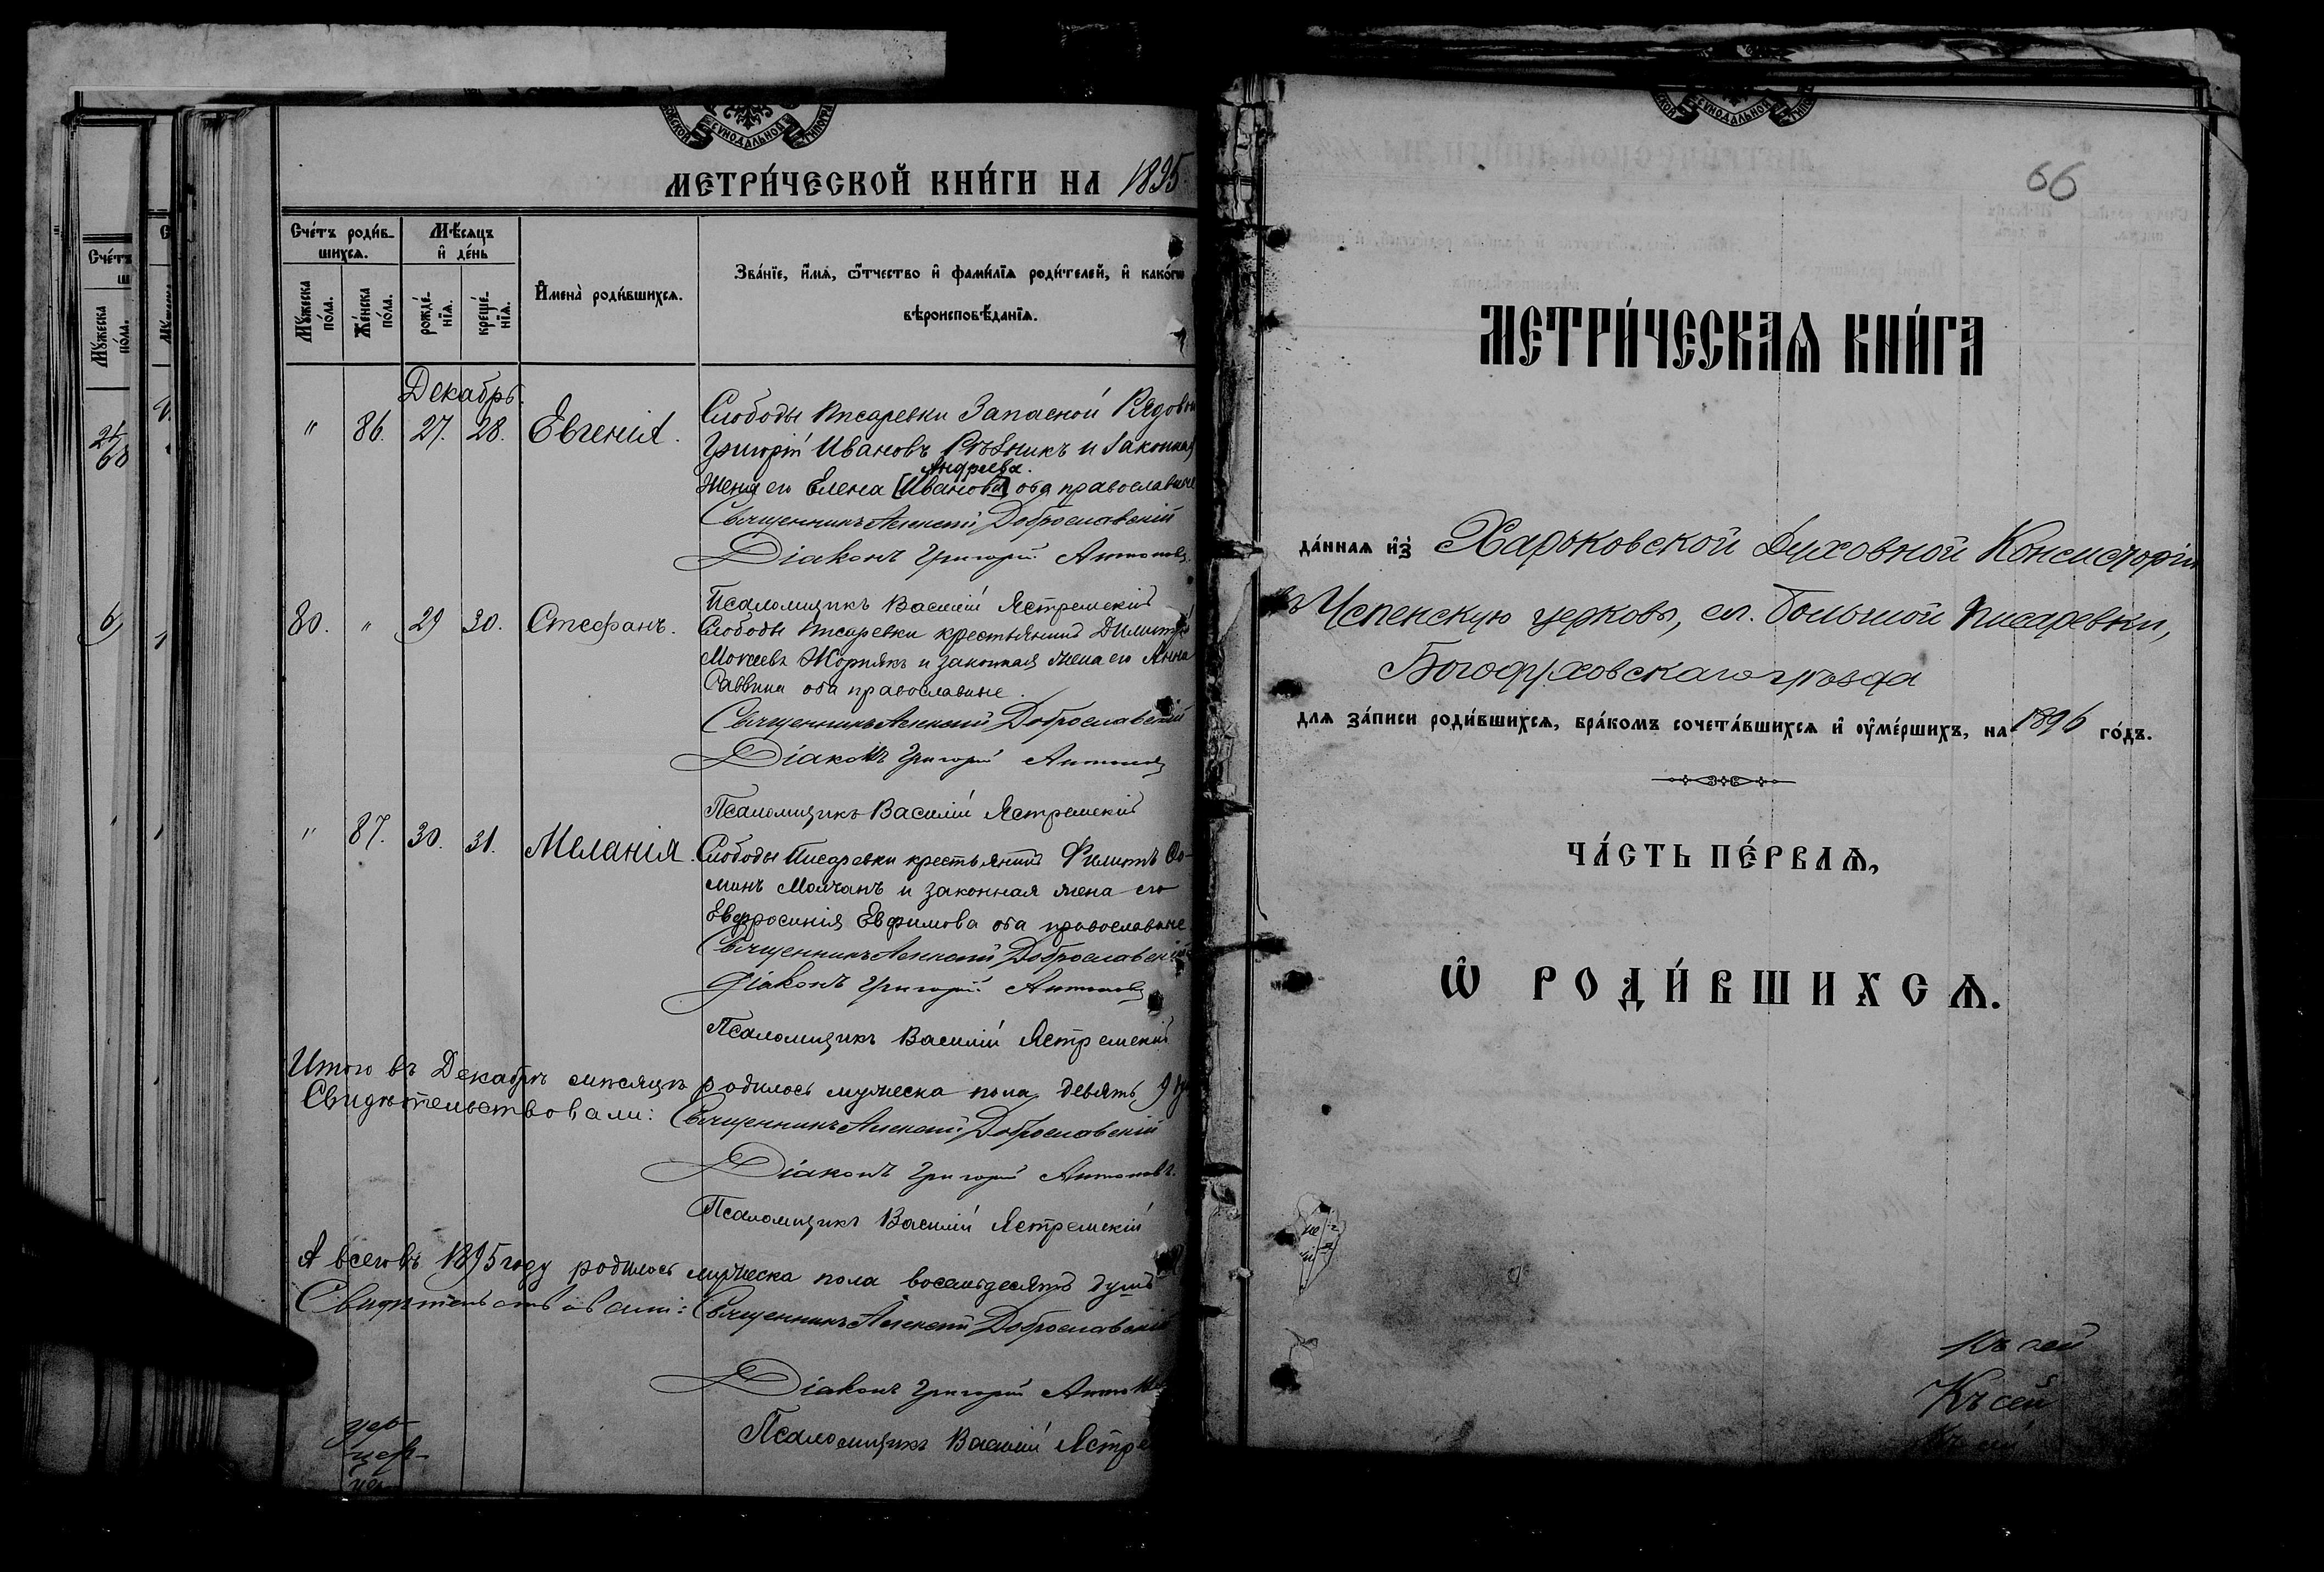 МЕТРИ́ЧЕСКОЙ КНИ́ГИ НА 1895
Сче́тъ роди́в-
шихсѧ.
Мѣ́сѧцъ
и҆ де́нь
И҆мена̀ роди́вшихсѧ.
Зва́нїе, и҆́мѧ, ѻ҆́тчество и҆ фами́лїѧ роди́телей, и҆ како́гѡ
вѣроисповѣ́данїѧ.
Мꙋ́жеска
по́ла.
Же́нска
по́ла.
рожде́-
нїѧ.
креще́-
нїѧ.
Декабрь.
" 86. 27. 28. Евгенія.
Слободы Писаревки Запасной Рядовы
Григорій Ивановъ Рѣзникъ и законная
Андреева.
жена его Елена [Иванова] оба православные
Священникъ Алексій Доброславскій
Діаконъ Григорій Антоновъ
Псаломщикъ Василій Ястремскій
80. " 29 30. Стефанъ.
Слободы Писаревки крестьянинъ Димитрій
Мокеевъ Жорнякъ и законная жена его Анна
Саввина оба православные.
Священникъ Алексій Доброславскій
Діаконъ Григорій Антоновъ
Псаломщикъ Василій Ястремскій
" 87. 30. 31. Меланія.
Слободы Писаревки крестьянинъ Филиппъ Ѳо-
минъ Молчанъ и законная жена его
Евфросинія Евфимова оба православные
Священникъ Алексій Доброславскій
Діаконъ Григорій Антоновъ
Псаломщикъ Василій Ястремскій
Итого въ Декабрѣ мѣсяцѣ родилось мужеска пола девять 9
Свидѣтельствовали: Священникъ Алексій Доброславскій
Діаконъ Григорій Антоновъ.
Псаломщикъ Василій Ястремскій
А всего въ 1895 году родилось мужеска пола восемьдесятъ душъ
Свидѣтельствовали: Священникъ Алексій Доброславскій
Діаконъ Григорій Антонов
Псаломщикъ Василій Ястре
цер-
цер-
66
МЕТРИ́ЧЕСКАѦ КНИ́ГА
да́ннаѧ и҆з̾ Харьковской Духовной Консисторіи
въ Успенскую церковь, сл. Большой Писаревки,
Богодуховскаго уѣзда
длѧ за́писи роди́вшихсѧ, бра́комъ сочета́вшихсѧ и҆ ᲂу҆ме́ршихъ, на 1896 го́дъ.
ЧА́СТЬ ПЕ́РВАѦ,
Ѽ РОДИ́ВШИХСѦ.
Къ сей
Къ сей